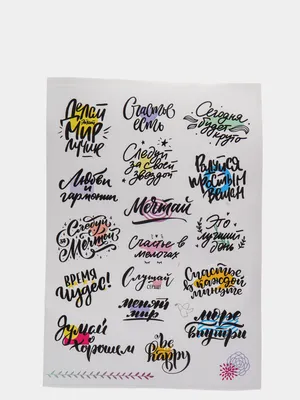 Делай
мир
лучше
Счастье
есть
Сегодня
будет
круто
Следуй
за своей
звездой
Любви
и
гармонии
Радуйся
каждым
Мечтай
Следуй
за
Мечтой
Это
лучший
день
Счастье в
мелочах
Время
чудес!
Слушай
сердце
Счастье
в каждой
минуте
меняй
мир
море
внутри
Думай
о
хорошем
be
happy